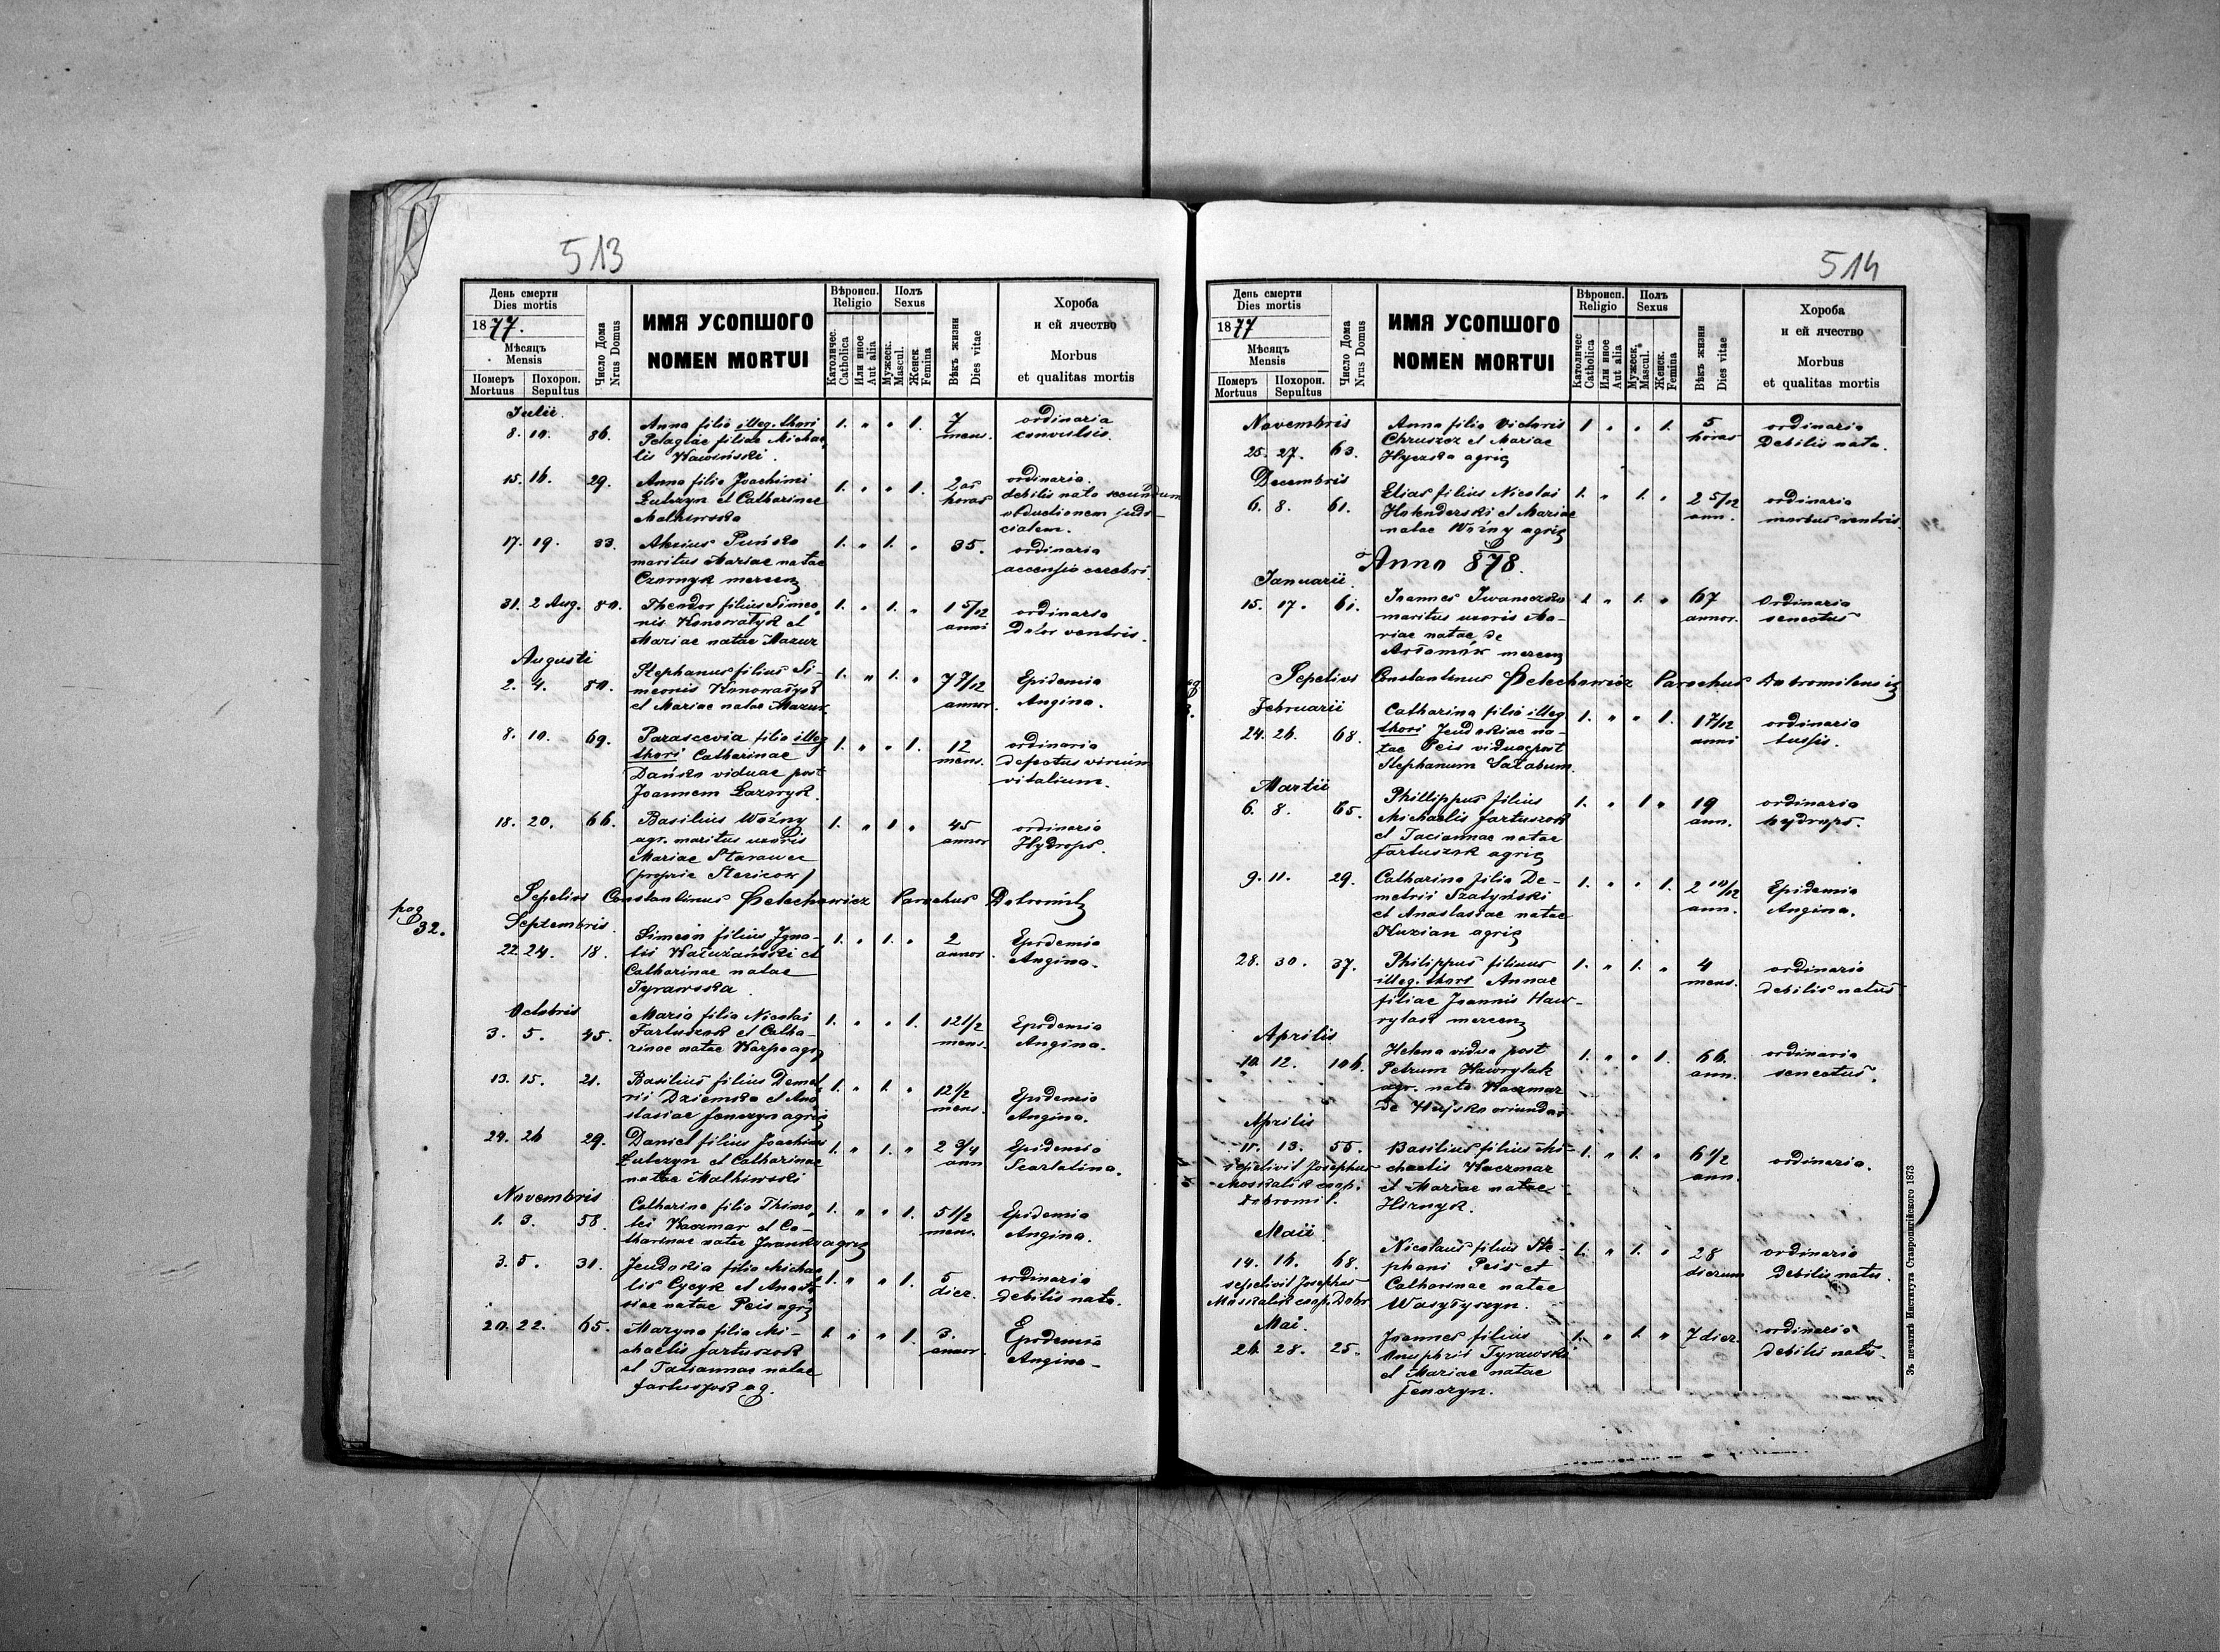 513
День смерти
Dies mortis
1877.
Мѣсяцъ
Mensis
Померъ Похорон.
Mortuus Sepultus
Число Дома
Nrus Domus
ИМЯ УСОПШОГО
NOMEN MORTUI
Вѣроисп.
Religio
Католичес.
Catholica
Или иное
Aut alia
Полъ
Sexus
Мужеск.
Mascul.
Женск.
Femina
Вѣкъ жизни
Dies vitae
Хороба
и ей ячество
Morbus
et qualitas mortis
Julii.
8. 10. 86. Anna filia illeg. thori 1. " " 1. 7 mens. ordinaria
Pelagiae filiae Michae convulsis.
lis
15. 16. 29. Anna filia Joachimi 1. " " 1. horas ordinaria.
Łuberyn et Catharinae debilis nata secundum
obductionem judi-
cialem.
17. 19. 33. Alexius Puńko 1. " 1. " 35. ordinaria
maritus Mariae natae accensio cerebri.
Czornyk mercen
31. 2 Aug. 80. Theodor filius Simeo 1. " 1. " 1 5/12 anni ordinaria
nis Konowałyk et Dolor ventris.
Mariae natae Mazur
Augusti
2. 4. 80. Stephanus filius Si- 1. " 1. " 7 7/12 annor. Epidemia
meonis Konowałyk Angina.
et Mariae natae Mazur.
8. 10. 69. Parascevia filia illeg 1. " " 1. 12 mens. ordinaria
thori Catharinae defectus virium
Dańko viduae post vitalium.
Joannem Łazoryk.
18. 20. 66. Basilius Woźny 1. " 1. " 45 annor ordinaria
agr. maritus uxoris Hydrops.
Mariae Starawer
(proprie
Sepelivi Constantinus Parochus
pag
32.
Septembris.
22 24. 18. Simeon filius Igna- 1. " 1. " 2 annor. Epidemia
tii Kałużański et Angina.
Catharinae natae
Tyrawska.
Octobris
3. 5. 45. Maria filia Nicolai 1. " " 1. 12 1/2 mens. Epidemia
Fartuszok et Catha- Angina.
rinae natae Karpo agr
13. 15. 21. Basilius filius Deme 1. " 1. " 12 1/2 mens. Epidemia
rii Dziemko et Ana Angina.
stasiae Jenczyn agric
24. 26 29. Daniel filius Joachimi 1. " 1. " 2 3/4 ann Epidemia
Łuberyn et Catharinae Scarlatina.
natae Malkiwski
Novembris
1. 3. 58. Catharina filia Thimo 1. " " 1. 5 1/2 mens. Epidemia
tei Kaczmar et Ca- Angina.
tharinae natae
3. 5. 31. Jeudokia filia Michae 1. " " 1. 5 dier. ordinaria
lis Cycyk et Anasta debilis nata.
siae natae Peis agr
20. 22. 65. Maryna filia Mi- 1. " " 1. 3. annor. Epidemia
chaelis Fartuszok Angina-
et Tatiannae natae
Fartuszok ag.
514
День смерти
Dies mortis
1877
Мѣсяцъ
Mensis
Померъ Похорон.
Mortuus Sepultus
Число Дома
Nrus Domus
ИМЯ УСОПШОГО
NOMEN MORTUI
Вѣроисп.
Religio
Католичес
Catholica
Или иное
Aut alia
Полъ
Sexus
Мужеск.
Mascul.
Женск.
Femina
Вѣкъ жизни
Dies vitae
Хороба
и ей ячество
Morbus
et qualitas mortis
Novembris Anna filia Victoris 1 " " 1. 5 horas ordinaria
Chruszcz et Mariae Debilis nata.
25. 27. 63. Hyczka agric
Decembris
6. 8. 61. Elias filius Nicolai 1. " 1. " 2 5/12 ann. ordinaria
Holenderski et Mariae morbus ventris.
natae Woźny agric
Anno 878.
Januarii.
15. 17. 61. Joannes Iwaneczko 1 " 1. " 67 annor. Ordinaria
maritus uxoris Ma- senectus
riae natae de
mercen
Sepelivi Constantinus Parochus Dobromilensis
Februarii
24. 26. 68. Catharina filia illeg 1. " " 1. 1 7/12 anni ordinaria
thori Jeudokiae na- tussis.
tae Peis viduae post
Stephanum
Martii
6. 8. 65. Phillippus filius 1. " 1 " 19 ann. ordinaria
Michaelis Fartuszok hydrops.
et Taciannae natae
Fartuszok agric
9. 11. 29. Catharina filia De- 1. " " 1. 2 10/12 ann. Epidemia
metrii Szatyński Angina.
et Anastasiae natae
Kuzian agric
28. 30. 37. Philippus filius 1. " 1. " 4 mens. ordinaria
illeg. thori Annae debilis natus
filiae Joannis Haw-
rylak mercen
Aprilis
10. 12. 106. Helena vidua post 1. " " 1. 66. ann. ordinaria
Petrum Hawrylak senectus.
agr. nata Kaczmar
de Hujsko oriunda
Aprilis
11. 13. 56. Basilius filius Mi- 1. " 1. " 6 1/2 ann. ordinaria.
sepelivit Josephus chaelis Kaczmar
Moskalik coop. et Mariae natae
Dobromil. Hirnyk.
Maii
14. 16. 68. Nicolaus filius Ste- 1. " 1. " 28 dierum ordinaria
sepelivit Josephus phani Peis et Debilis natus.
Moskalik coop. Dobr. Catharinae natae
Wasyłyszyn.
Mai.
26 28. 25. Joannes filius 1. " 1. " 7 dier. ordinaria
Onuphrii Tyrawski debilis natus.
et Mariae natae
Jenczyn.
Зъ печатнѣ Института Ставропигійского 1873